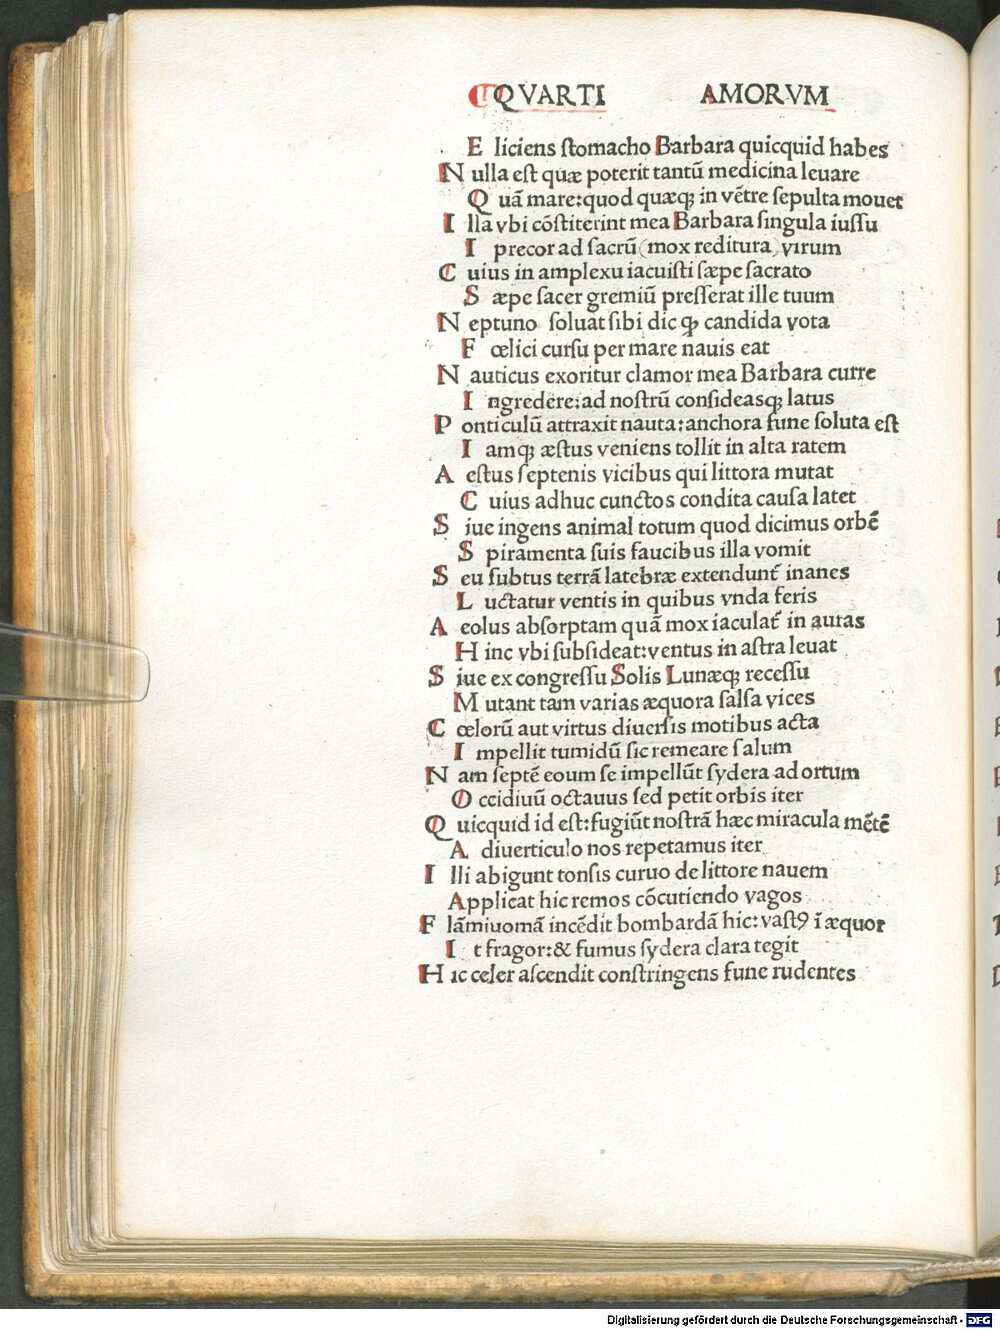 QVARTI AMORVM
E liciens ſtomacho Barbara quicquid habes
N ulla eſt quæ poterit tantū medicina leuare
Q uā mare:quod quæqꝫ in vētre ſepulta mouet
I lla vbi cōſtiterint mea Barbara ſingula iuſſu
I precor ad ſacrū(mox reditura)virum
C uius in amplexu iacuiſti ſæpe ſacrato
S æpe ſacer gremiū preſſerat ille tuum
N eptuno ſoluat ſibi dic qꝫ candida vota
F œlici curſu per mare nauis eat
N auticus exoritur clamor mea Barbara curre
I ngredere:ad noſtrū conſideasqꝫ latus
P onticulū attraxit nauta:anchora fune ſoluta eſt
I amqꝫ æſtus veniens tollit in alta ratem
A eſtus ſeptenis vicibus qui littora mutat
C uius adhuc cunctos condita cauſa latet
S iue ingens animal totum quod dicimus orbē
S piramenta ſuis faucibus illa vomit
S eu ſubtus terrā latebræ extendunt̄ inanes
L uctatur ventis in quibus vnda feris
A eolus abſorptam quā mox iaculat̄ in auras
H inc vbi ſubſideat:ventus in aſtra leuat
S iue ex congreſſu Solis Lunæqꝫ receſſu
M utant tam varias æquora ſalſa vices
C œlorū aut virtus diuerſis motibus acta
I mpellit tumidū ſic remeare ſalum
N am ſeptē eoum ſe impellūt ſydera ad ortum
O ccidiuū octauus ſed petit orbis iter
Q uicquid id eſt:fugiūt noſtrā hæc miracula mētē
A diuerticulo nos repetamus iter
I lli abigunt tonſis curuo de littore nauem
Applicat hic remos cōcutiendo vagos
F lāmiuomā incēdit bombardā hic:vaſtꝰ ī æquor
I t fragor:& fumus ſydera clara tegit
H ic celer aſcendit conſtringens fune rudentes
Digitalisierung gefördert durch die Deutsche Forschungsgemeinschaft - DFG